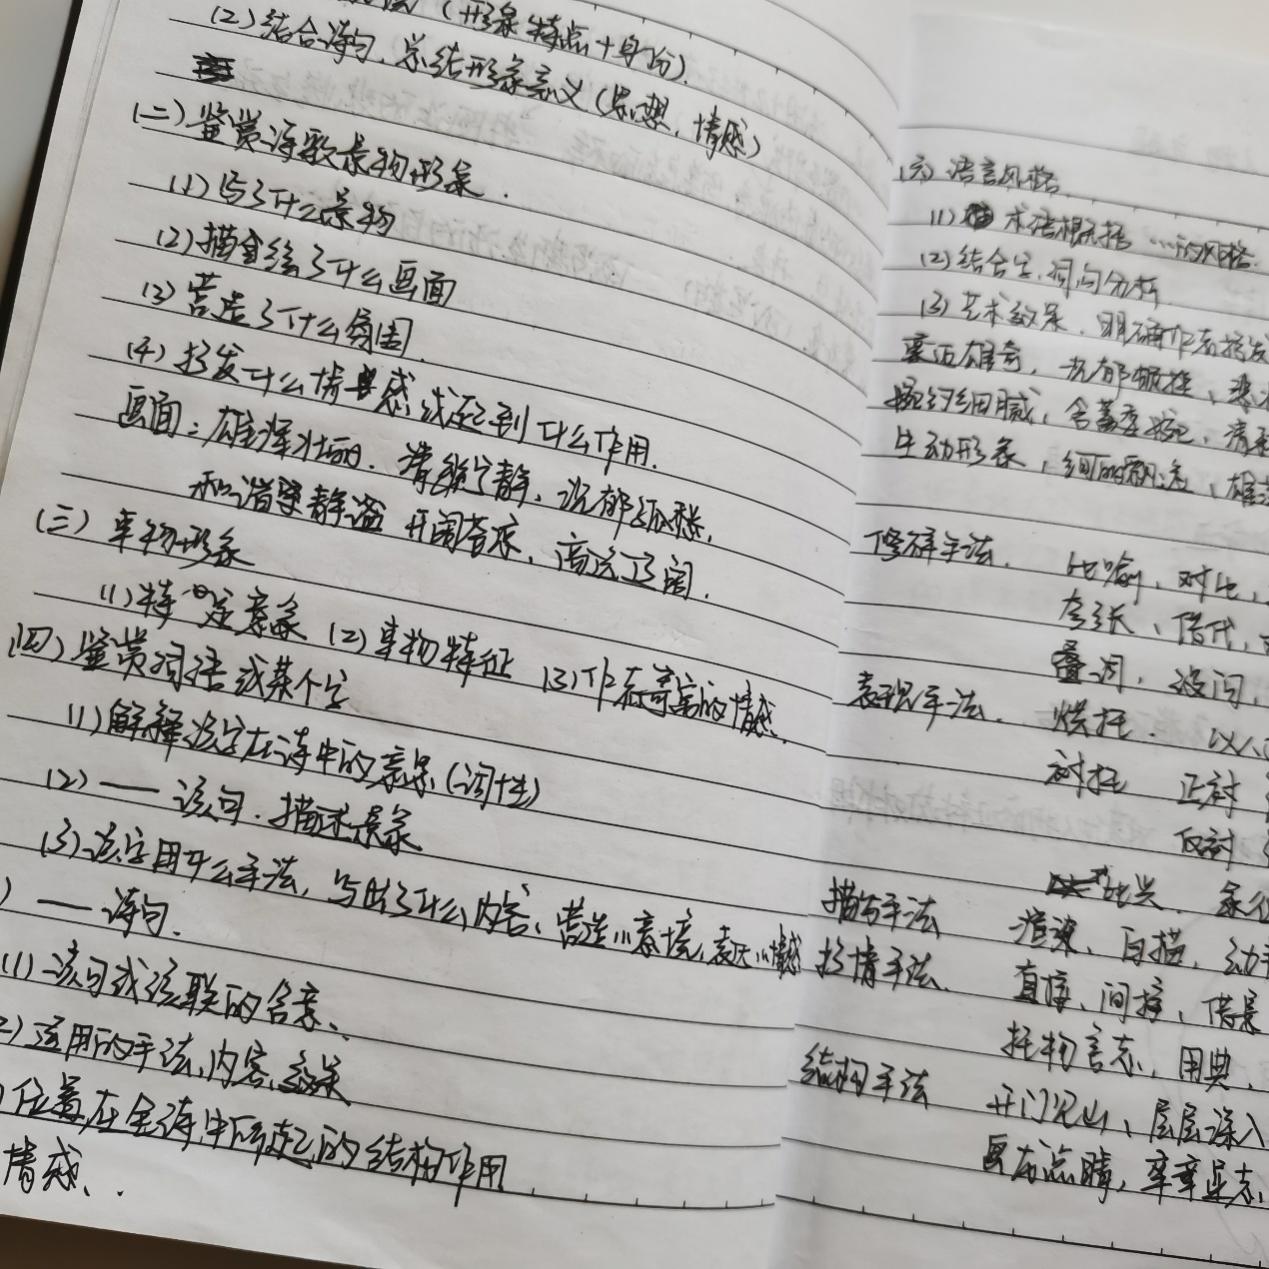 （形象特点+身份）.
(2)结合诗句，总结形象意义(思想，情感)
(二)鉴赏诗歌景物形象.
(1)写了什么景物
(2)描绘了什么画面
(3)营造了什么氛围.
(4)抒发什么情感或起到什么作用.
画面：雄浑壮丽. 清幽宁静、沉郁孤愁,
和谐静谧 开阔苍凉、高远辽阔.
(三)事物形象
(1)特定意象 (2)事物特征 (3)作者寄寓的情感.
(四)鉴赏词语或某个字
(1)解释该字在诗中的意思(词性)
(2)——该句.描述景象
(3)该字用什么手法，写出了什么内容、营造…意境,表达…情感
)——诗句.
(1)该句或该联的含意、
2)运用的手法、内容、效果
)位置在全诗中所起的结构作用
情感、.
(六)语言风格
(1)术语概括…的风格.
(2)结合字.词句分析
(3)艺术效果.明确作者抒发
豪迈雄奇，沉郁顿挫、
婉约细腻、含蓄委婉、清
生动形象，飘逸、雄
修辞手法. 比喻、对比，
夸张、借代，
叠词，设问，
表现手法. 烘托. 以
衬托 正衬
反衬
比兴.
描写手法 渲染、白描，动
抒情手法. 直接、间接，借景
托物言志，用典、
结构手法 开门见山、层层深入
画龙点睛，卒章显志、